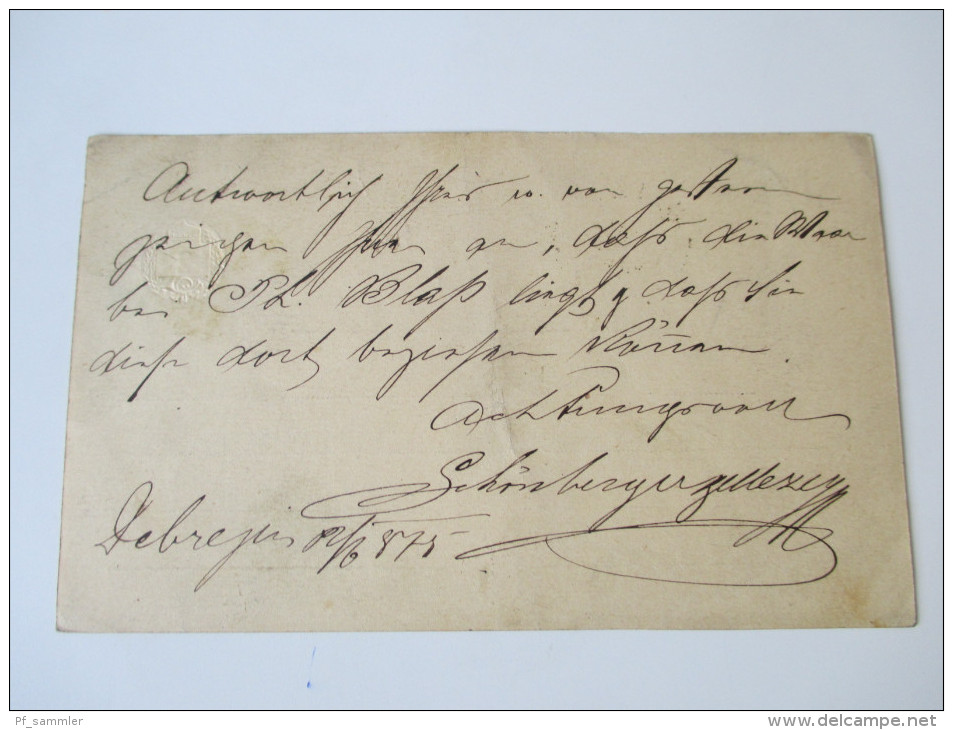 Antwortlich Ihres w. von gestern
zeigen Ihnen an, dass die Waare
bei Ph. Blaß liegt & dass Sie
diese dort beziehen können.
Achtungsvoll
Schönberger
Debrezin 875
Pf_sammler
http://www.delcampe.net